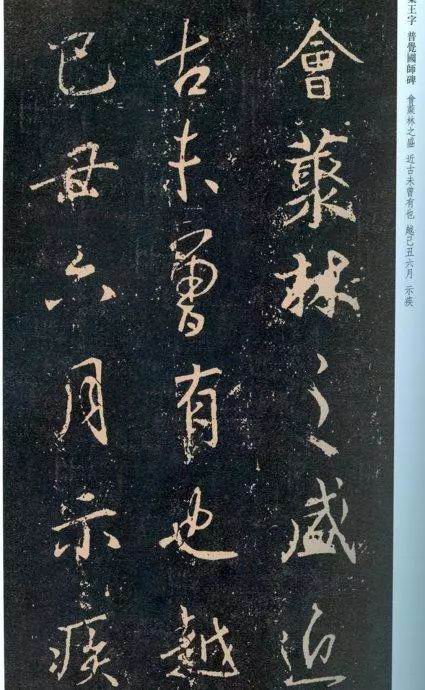 會藂林之盛近
古未曾有也越
己丑六月示疾
集王字 普覺國師碑 會藂林之盛 近古未曾有也 越己丑六月 示疾